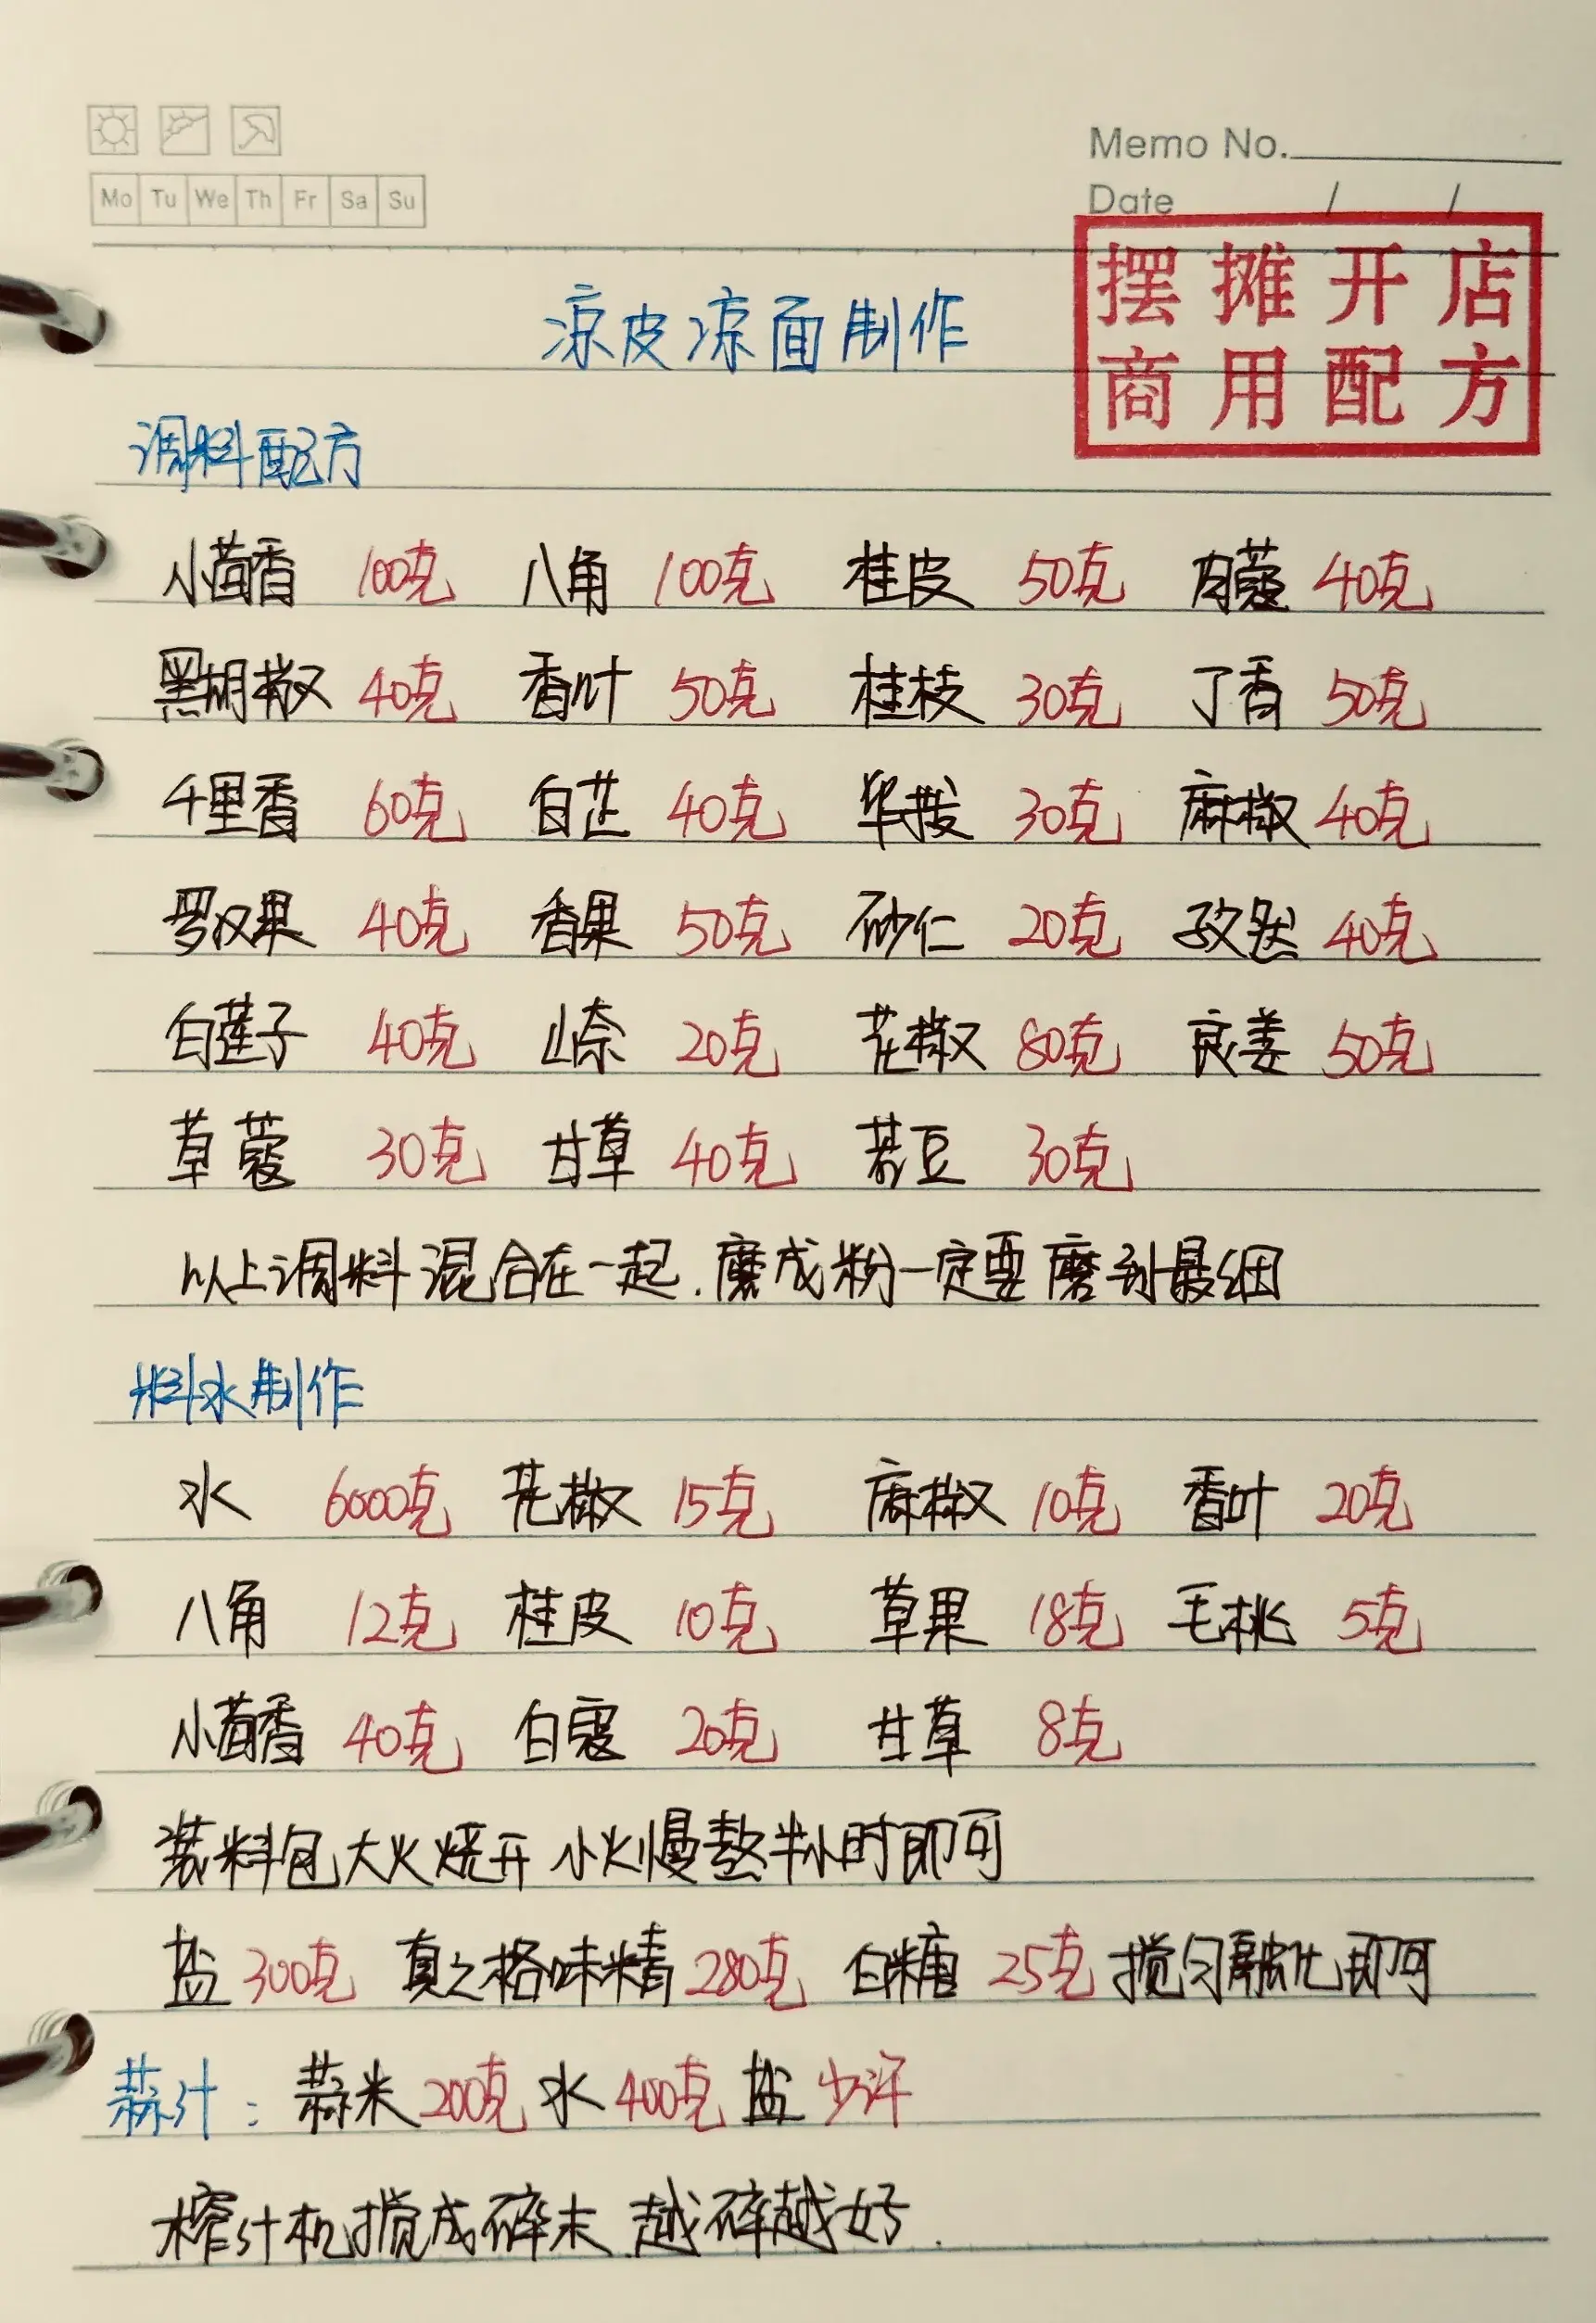 Memo No.
Mo Tu We Th Fr Sa Su
Date / /
摆摊开店
商用配方
凉皮凉面制作
调料配方
小茴香 100克 八角 100克 桂皮 50克 肉蔻 40克
黑胡椒 40克 香叶 50克 桂枝 30克 丁香 50克
千里香 60克 白芷 40克 华拨 30克 麻椒 40克
罗汉果 40克 香果 50克 砂仁 20克 孜然 40克
白莲子 40克 山奈 20克 花椒 80克 良姜 50克
草蔻 30克 甘草 40克 豆 30克
以上调料混合在一起.磨成粉一定要磨到最细
料水制作
水 6000克 花椒 15克 麻椒 10克 香叶 20克
八角 12克 桂皮 10克 草果 18克 毛桃 5克
小茴香 40克 白寇 20克 甘草 8克
装料包大火烧开 小火慢熬半小时即可
盐 300克 真之格味精 280克 白糖 25克 搅匀融化即可
蒜汁: 蒜米 200克 水 400克 盐 少许
榨汁机搅成碎末 越碎越好.